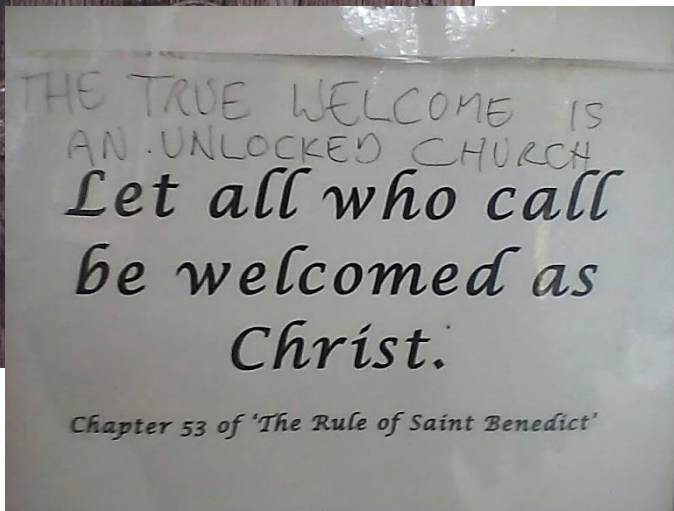 THE TRUE WELCOME IS
AN UNLOCKED CHURCH
Let all who call
be welcomed as
Christ.
Chapter 53 of 'The Rule of Saint Benedict'